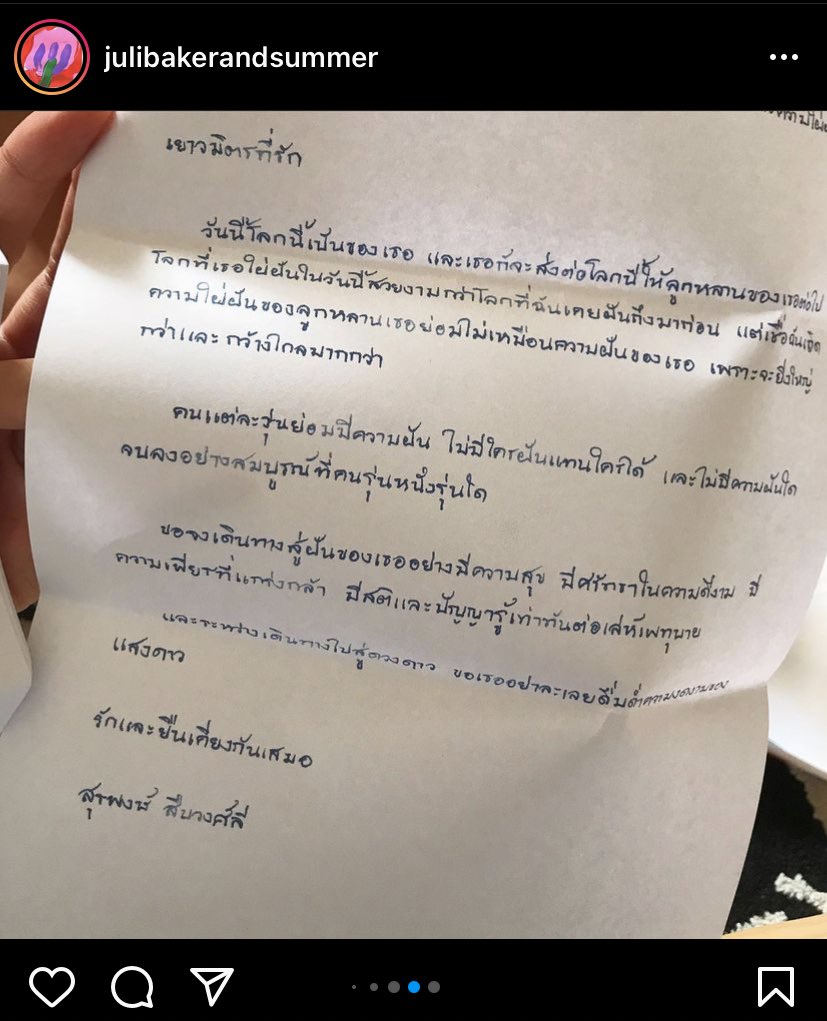 julibakerandsummer
เยาวมิตรที่รัก
วันนี้โลกนี้เป็นของเธอ และเธอก็จะส่งต่อโลกนี้ให้ลูกหลานของเธอต่อไป
โลกที่เธอใฝ่ฝันในวันนี้สวยงามกว่าโลกที่ฉันเคยฝันถึงมาก่อน แต่เชื่อฉันเถิด
ความใฝ่ฝันของลูกหลานเธอย่อมไม่เหมือนความฝันของเธอ เพราะจะยิ่งใหญ่
กว่าและกว้างไกลมากกว่า
คนแต่ละรุ่นย่อมมีความฝัน ไม่มีใครฝันแทนใครได้ และไม่มีความฝันใด
จบลงอย่างสมบูรณ์ที่คนรุ่นหนึ่งรุ่นใด
ขอจงเดินทางสู่ฝันของเธออย่างมีความสุข มีศรัทธาในความดีงาม มี
ความเพียรที่แกร่งกล้า มีสติและปัญญารู้เท่าทันต่อเล่ห์เพทุบาย
และระหว่างเดินทางไปสู่ดวงดาว ขอเธออย่าละเลยดื่มด่ำความงดงามของ
แสงดาว
รักและยืนเคียงกันเสมอ
สุรพงษ์ สืบวงศ์ลี